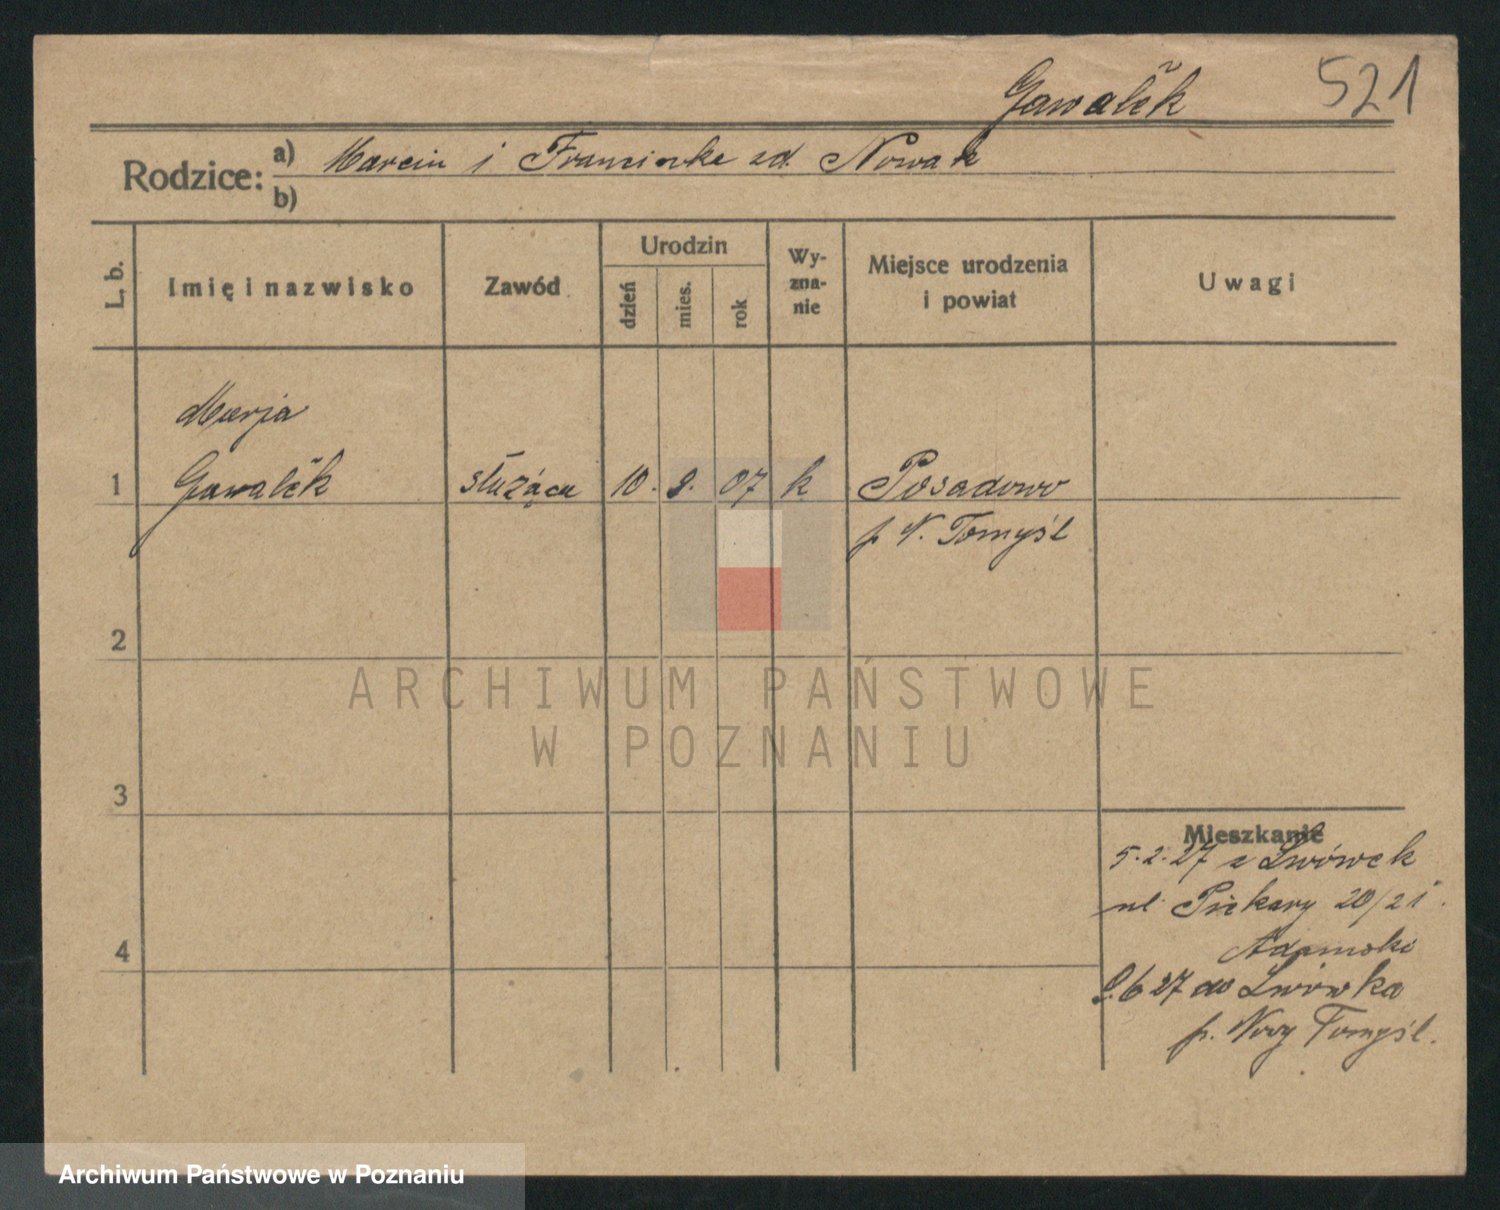 Gawalĕk 521
Rodzice: a) Marcin i Franciszka zd. Nowak
b)
L. b. Imię i nazwisko Zawód Urodzin dzień mies. rok Wy-zna-nie Miejsce urodzenia i powiat Uwagi
Marja
1 Gawalĕk służąca 10. 9. 07 k Posadowo
p N. Tomyśl
2
ARCHIWUM PAŃSTWOWE
W POZNANIU
3
Mieszkanie
5.2.27 z Lwówek
ul Piekary 20/21.
4
6 27 do Lwówka
p. Nowy Tomyśl.
Archiwum Państwowe w Poznaniu